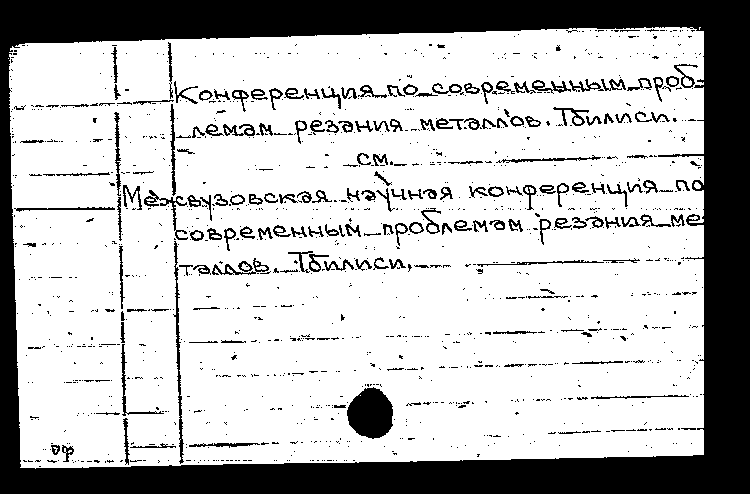 Конференция по современным проб-
лемам резания металлов. Тбилиси.
см.
Межвузовская научная конференция по
современным проблемам резания ме-
таллов. Тбилиси.